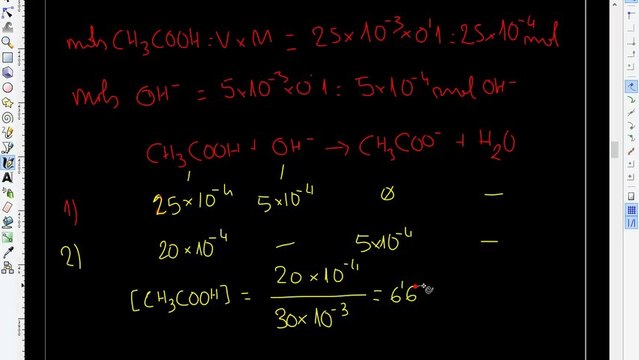 mols CH₃COOH : V×M = 25×10⁻³×0'1 = 25×10⁻⁴ mol
mols OH⁻ = 5×10⁻³×0'1 = 5×10⁻⁴ mol OH⁻
CH₃COOH + OH⁻ → CH₃COO⁻ + H₂O
1) 25×10⁻⁴ 5×10⁻⁴ 0 —
2) 20×10⁻⁴ — 5×10⁻⁴ —
[CH₃COOH] = 20×10⁻⁴ / 30×10⁻³ = 6'6